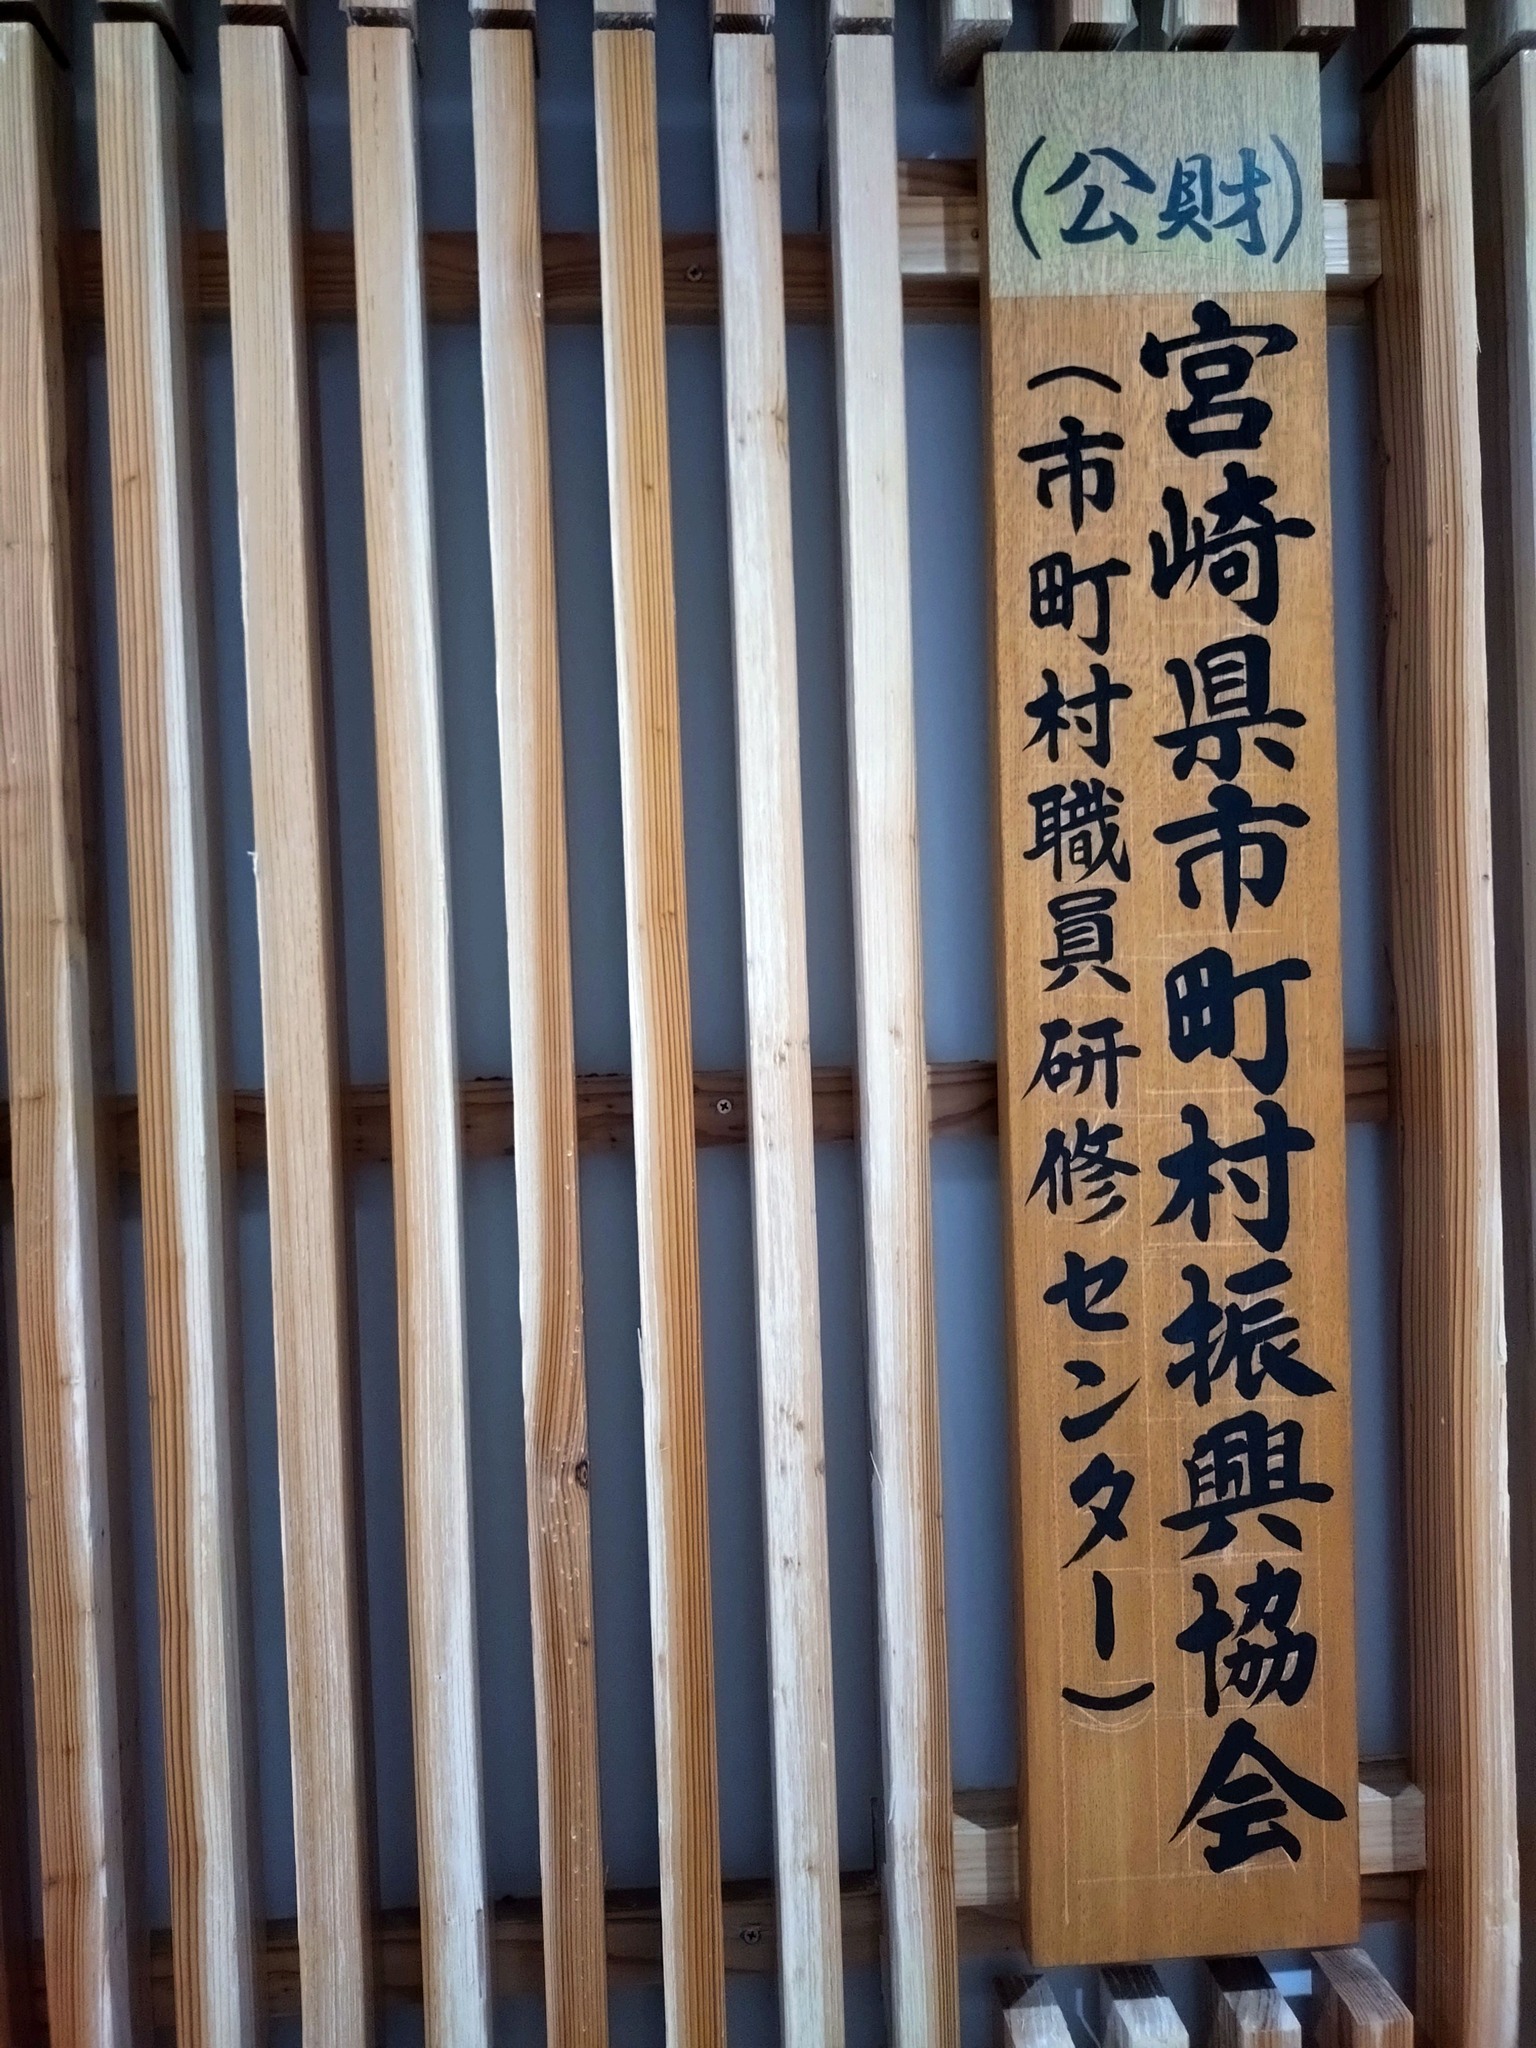 （公財）
宮崎県市町村振興協会
（市町村職員研修センター）